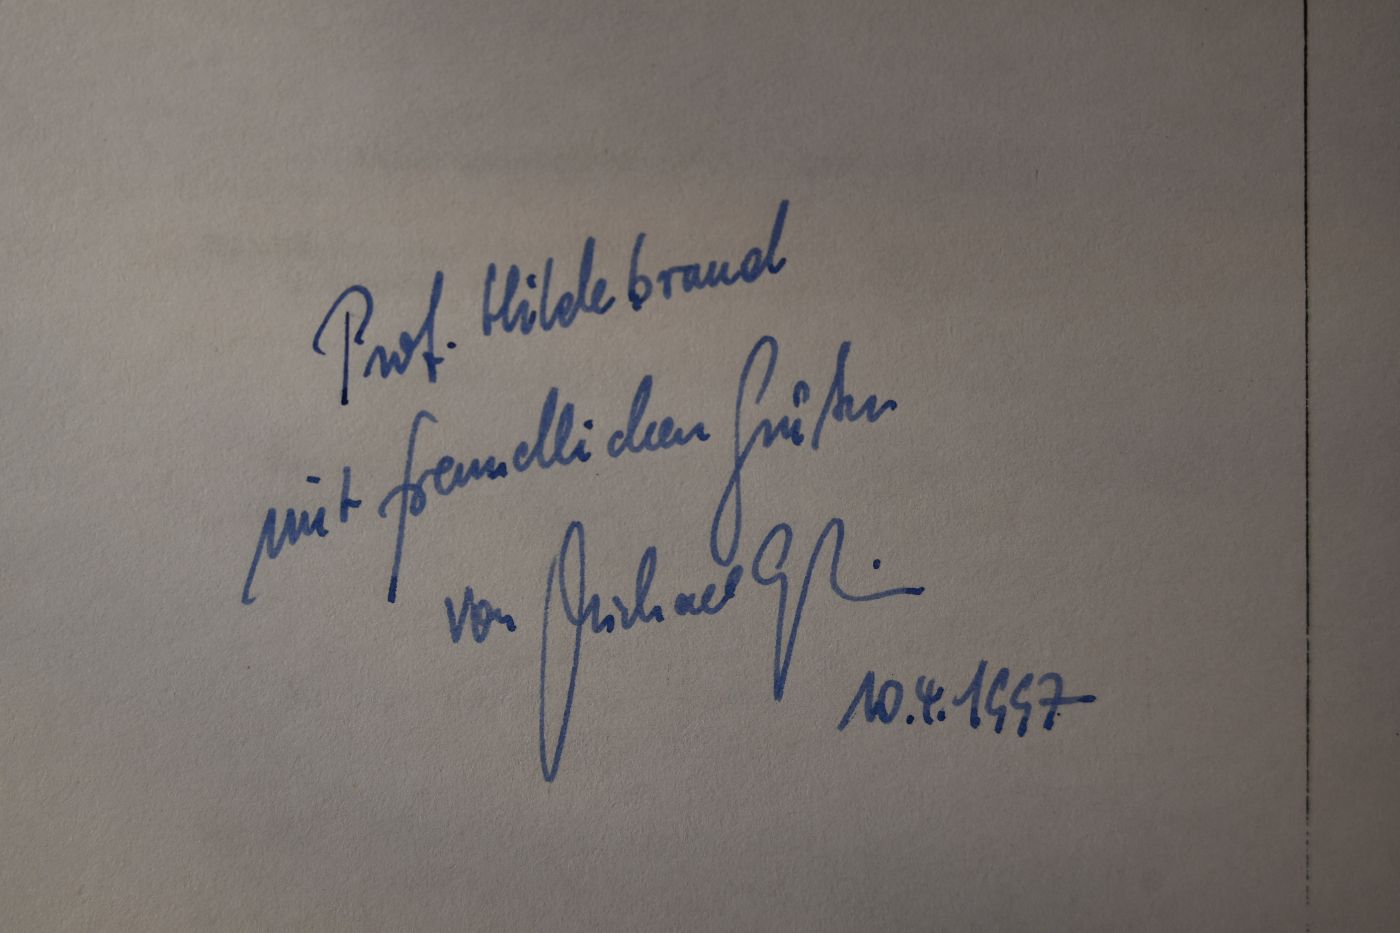 Prof. Hildebrand
mit freundlichen Grüßen
von Michael
10.4.1997